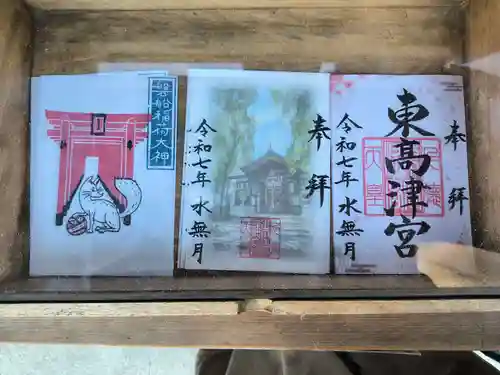 磐船稲荷大神
奉拝
令和七年水無月
奉拝
東高津宮
令和七年水無月